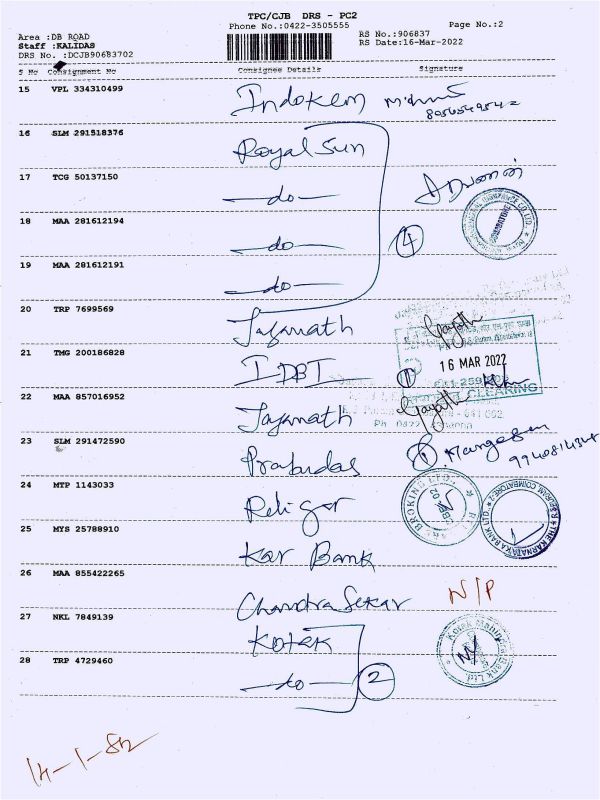 TPC/CJB DRS - PC2
Phone No.:0422-3505555
Page No.:2
Area :DB ROAD
Staff :KALIDAS
DRS No. :DCJB90683702
RS No.:906837
RS Date:16-Mar-2022
S No Consignment No Consignee Details Signature
15 VPL 334310499 Indokem
8056549542
16 SLM 291518376 Royal Sun
17 TCG 50137150 -do-
18 MAA 281612194 -do- 4
19 MAA 281612191 -do-
20 TRP 7699569 Jayanath Gayath
21 TMG 200186828 IDBI 1
16 MAR 2022
CLEARING
22 MAA 857016952 Jayanath Gayath
23 SLM 291472590 Prabudas 1
24 MTP 1143033 Religar
BROKING LTD.
25 MYS 25788910 Kar Bank
THE KARNATAKA BANK LTD.
26 MAA 855422265 Chandra Sekar N/P
27 NKL 7849139 Kotak
Kotak Mahindra Bank Ltd.
28 TRP 4729460 -do- 2
14-1-82